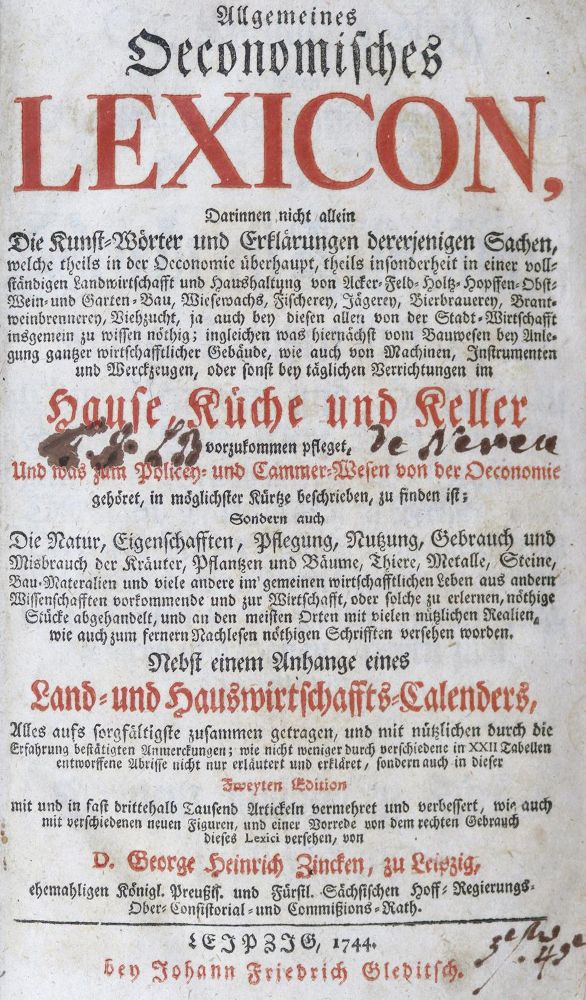 Allgemeines
Oeconomisches
LEXICON,
Darinnen nicht allein
Die Kunst-Wörter und Erklärungen dererjenigen Sachen,
welche theils in der Oeconomie überhaupt, theils insonderheit in einer voll-
ständigen Landwirtschafft und Haushaltung von Acker-Feld-Holtz-Hopffen-Obst-
Wein- und Garten-Bau, Wiesewachs, Fischerey, Jägerey, Bierbrauerey, Brant-
weinbrennerey, Viehzucht, ja auch bey diesen allen von der Stadt-Wirtschafft
insgemein zu wissen nöthig; ingleichen was hiernächst vom Bauwesen bey Anle-
gung gantzer wirtschafftlicher Gebäude, wie auch von Machinen, Instrumenten
und Werckzeugen, oder sonst bey täglichen Verrichtungen im
Hause, Küche und Keller
vorzukommen pfleget, de Neren
Und was zum Policey- und Cammer-Wesen von der Oeconomie
gehöret, in möglichster Kürtze beschrieben, zu finden ist;
Sondern auch
Die Natur, Eigenschafften, Pflegung, Nutzung, Gebrauch und
Misbrauch der Kräuter, Pflantzen und Bäume, Thiere, Metalle, Steine,
Bau-Materalien und viele andere im gemeinen wirtschafftlichen Leben aus andern
Wissenschafften vorkommende und zur Wirtschafft, oder solche zu erlernen, nöthige
Stücke abgehandelt, und an den meisten Orten mit vielen nützlichen Realien,
wie auch zum fernern Nachlesen nöthigen Schrifften versehen worden.
Nebst einem Anhange eines
Land- und Hauswirtschaffts-Calenders,
Alles aufs sorgfältigste zusammen getragen, und mit nützlichen durch die
Erfahrung bestätigten Anmerckungen; wie nicht weniger durch verschiedene in XXII Tabellen
entworffene Abrisse nicht nur erläutert und erkläret, sondern auch in dieser
Zweyten Edition
mit und in fast drittehalb Tausend Artickeln vermehret und verbessert, wie auch
mit verschiedenen neuen Figuren, und einer Vorrede von dem rechten Gebrauch
dieses Lexici versehen, von
D. George Heinrich Zincken, zu Leipzig,
ehemahligen Königl. Preußis. und Fürstl. Sächsischen Hoff-Regierungs-
Ober-Consistorial- und Commißions-Rath.
LEIPZIG, 1744.
bey Johann Friedrich Gleditsch.